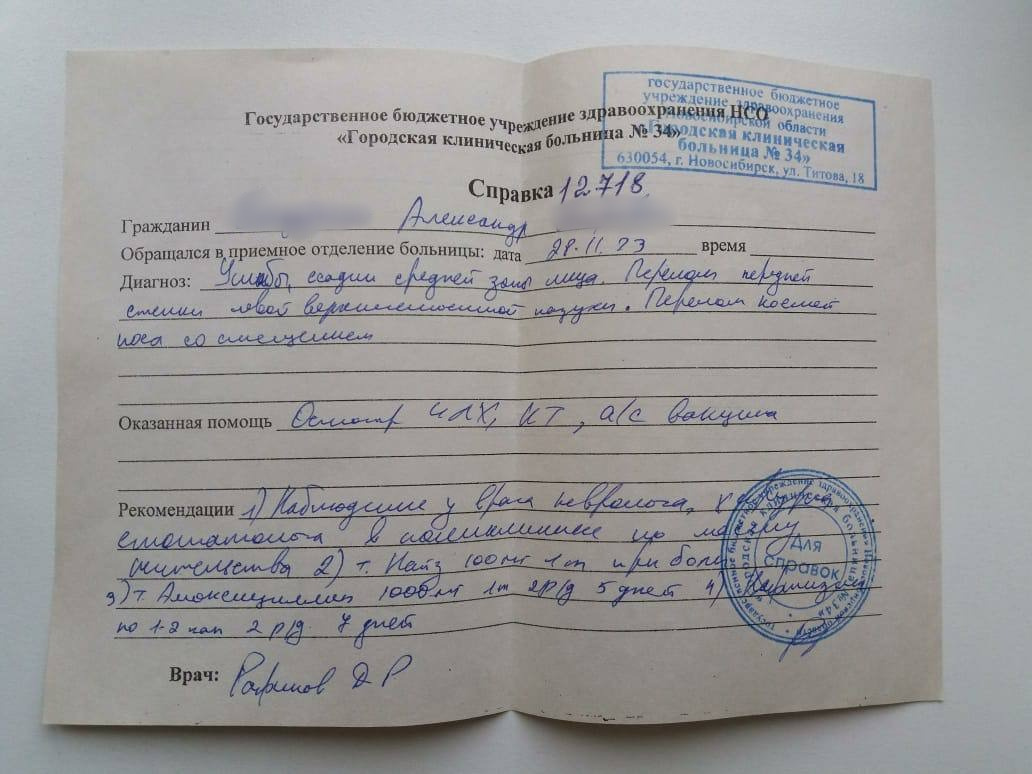 Государственное бюджетное учреждение здравоохранения НСО
«Городская клиническая больница № 34»
государственное бюджетное
учреждение здравоохранения
Новосибирской области
«Городская клиническая
больница № 34»
630054, г. Новосибирск, ул. Титова, 18
Справка 12718.
Гражданин Александр
Обращался в приемное отделение больницы: дата 28.11.23 время
Диагноз: Ушибы, ссадины средней зоны лица. Перелом передней
стенки левой верхнечелюстной пазухи. Перелом костей
носа со смещением
Оказанная помощь Осмотр ЧЛХ, КТ, а/с вакцина
Рекомендации 1) Наблюдение у врача невролога,
стоматолога в поликлинике по месту
жительства 2) т. Найз 100мг 1т при боли
3) т. Амоксициллин 1000мг 1т 2р/д 5 дней 4)
по 1-2 кап 2 р/д. 7 дней
Для
справок
Врач: Рафиков Д Р